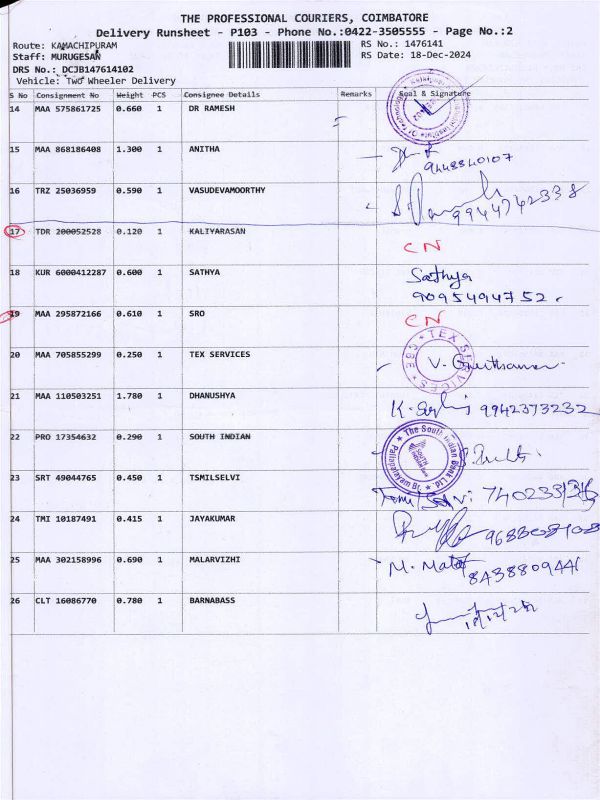 THE PROFESSIONAL COURIERS, COIMBATORE
Delivery Runsheet - P103 - Phone No.:0422-3505555 - Page No.:2
Route: KAMACHIPURAM
RS No.: 1476141
Staff: MURUGESAN
RS Date: 18-Dec-2024
DRS No.: DCJB147614102
Vehicle: Two Wheeler Delivery
S No Consignment No Weight PCS Consignee Details Remarks Seal & Signature
14 MAA 575861725 0.660 1 DR RAMESH
15 MAA 868186408 1.300 1 ANITHA
9448840107
16 TRZ 25036959 0.590 1 VASUDEVAMOORTHY
9944742338
17 TDR 200052528 0.120 1 KALIYARASAN CN
18 KUR 6000412287 0.600 1 SATHYA Sathya
9095494752.
19 MAA 295872166 0.610 1 SRO CN
20 MAA 705855299 0.250 1 TEX SERVICES TEX SERVICES CBE
21 MAA 110503251 1.780 1 DHANUSHYA 9942373232
22 PRO 17354632 0.290 1 SOUTH INDIAN The South Indian Bank Ltd
23 SRT 49044765 0.450 1 TSMILSELVI Tamil Selvi
24 TMI 10187491 0.415 1 JAYAKUMAR
25 MAA 302158996 0.690 1 MALARVIZHI
8438809441
26 CLT 16086770 0.780 1 BARNABASS